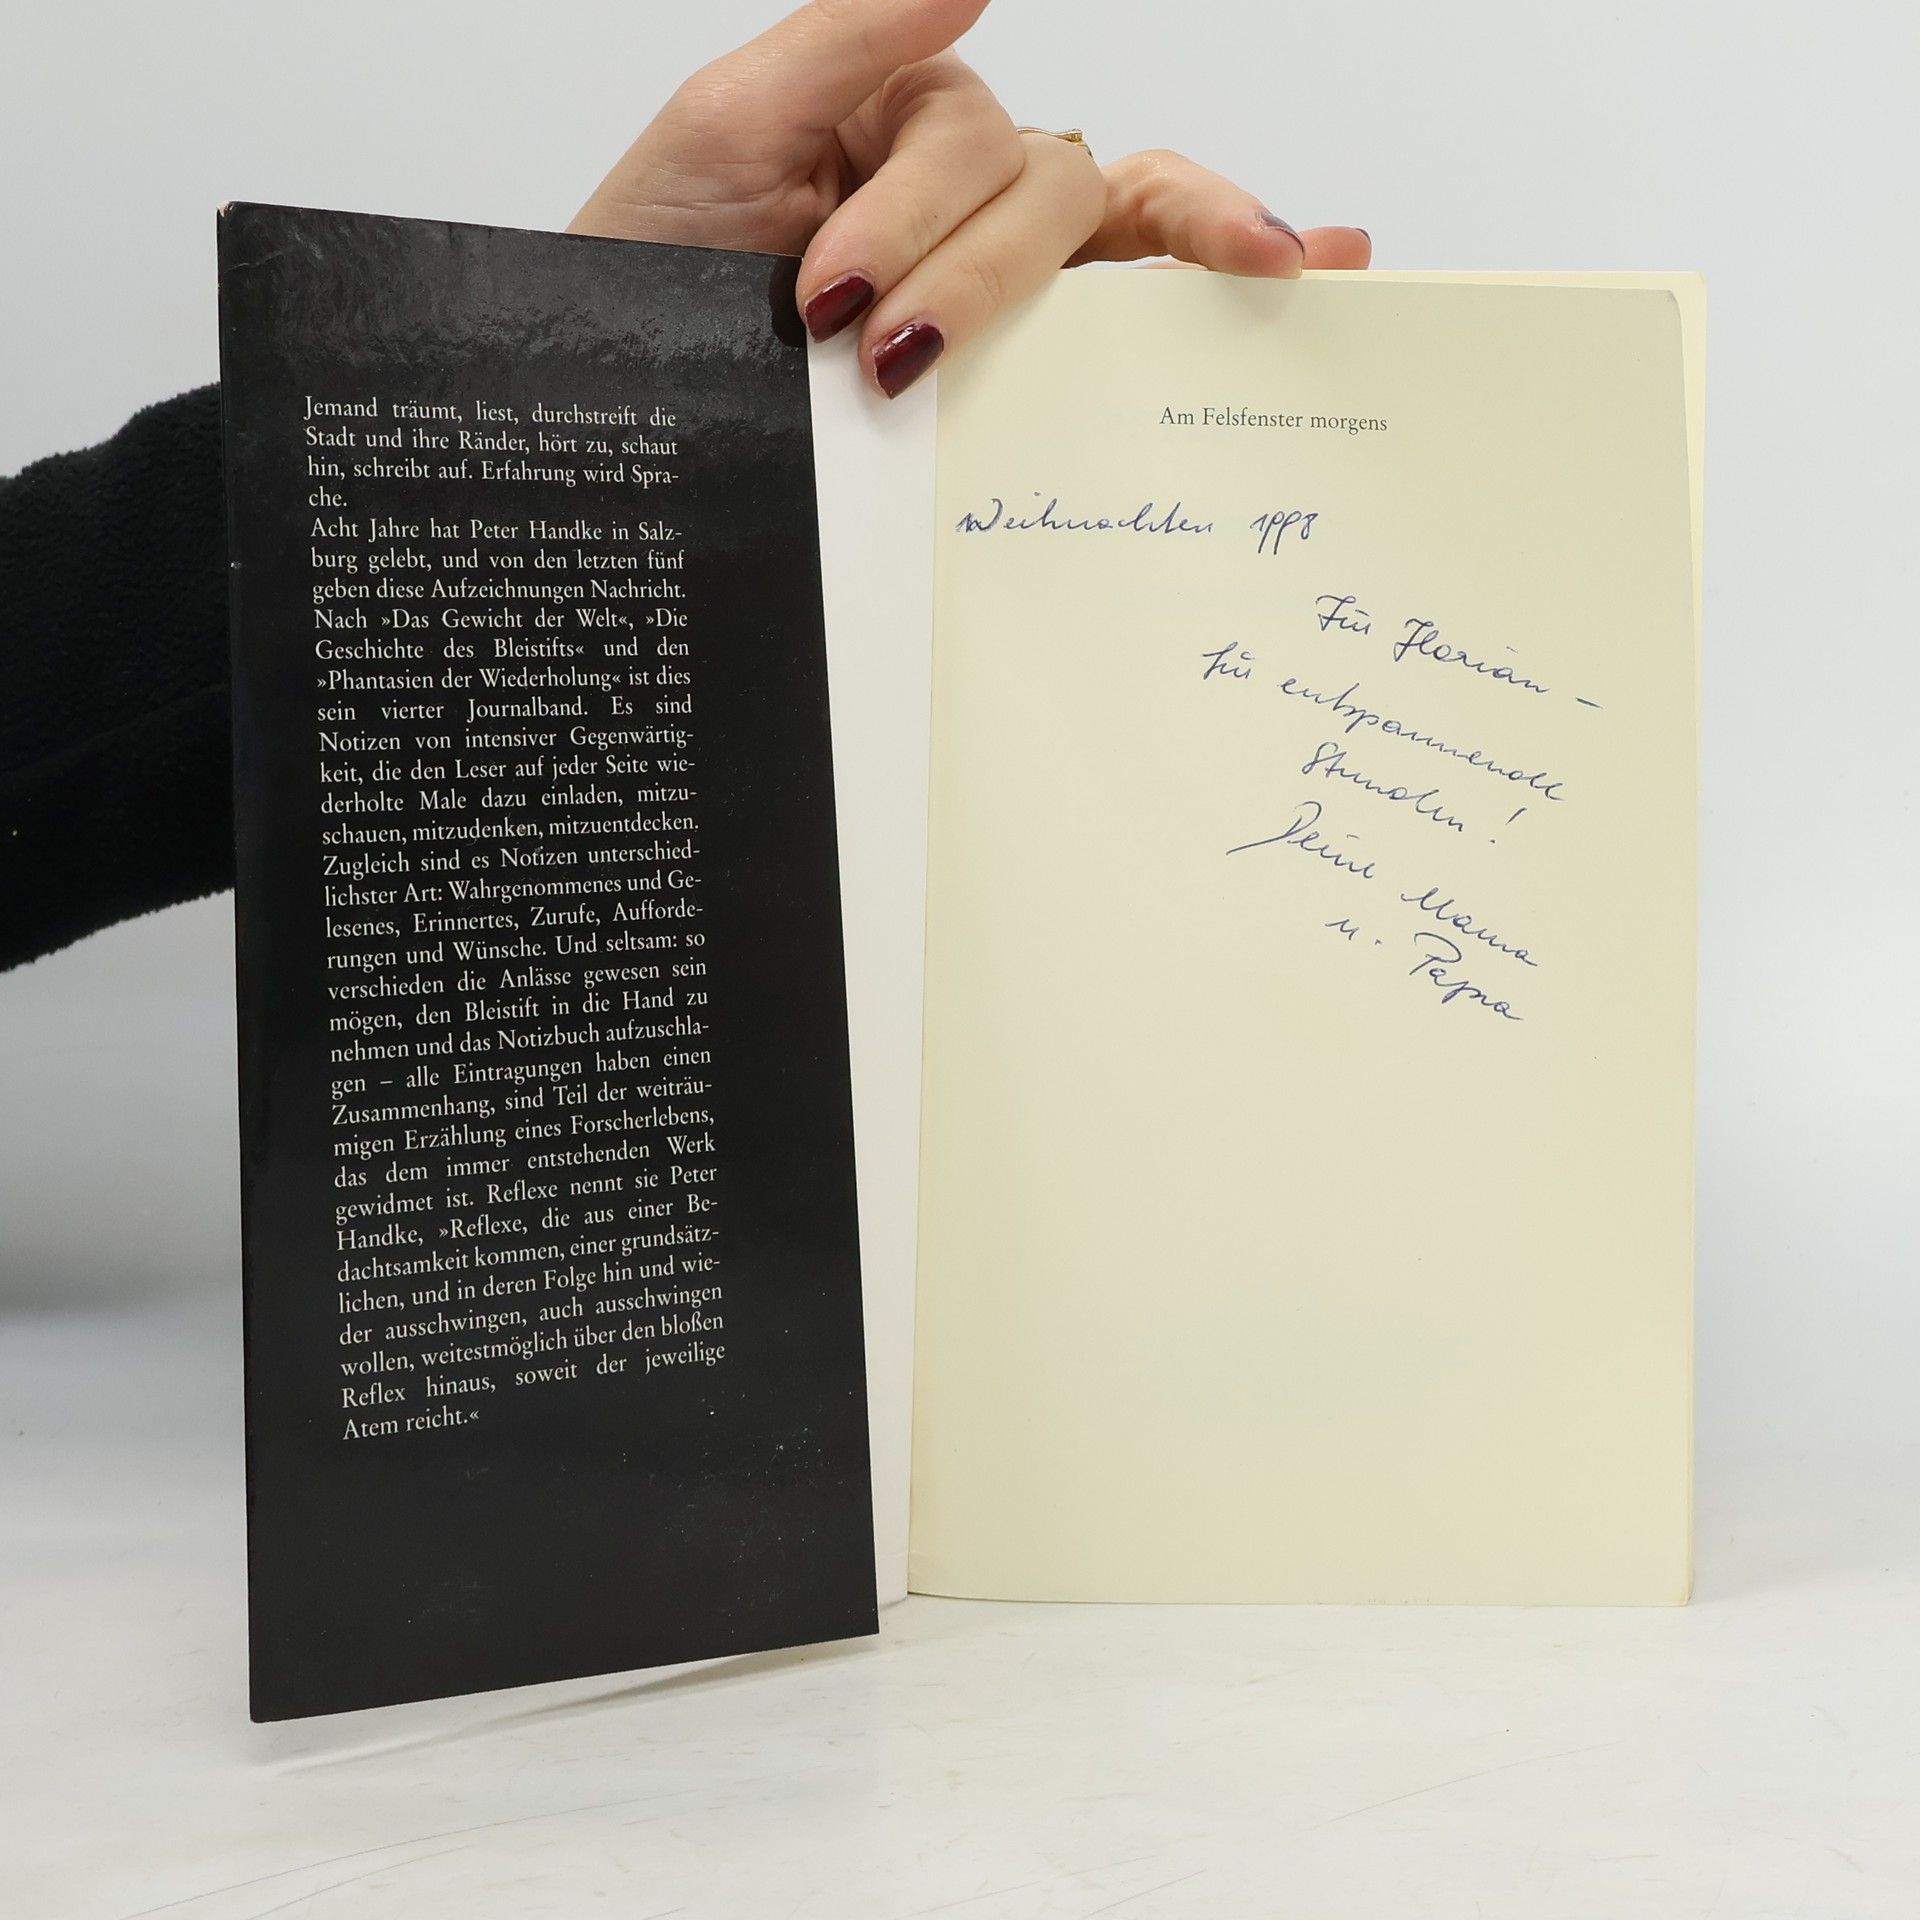 Jemand träumt, liest, durchstreift die
Stadt und ihre Ränder, hört zu, schaut
hin, schreibt auf. Erfahrung wird Spra-
che.
Acht Jahre hat Peter Handke in Salz-
burg gelebt, und von den letzten fünf
geben diese Aufzeichnungen Nachricht.
Nach »Das Gewicht der Welt«, »Die
Geschichte des Bleistifts« und den
»Phantasien der Wiederholung« ist dies
sein vierter Journalband. Es sind
Notizen von intensiver Gegenwärtig-
keit, die den Leser auf jeder Seite wie-
derholte Male dazu einladen, mitzu-
schauen, mitzudenken, mitzuentdecken.
Zugleich sind es Notizen unterschied-
lichster Art: Wahrgenommenes und Ge-
lesenes, Erinnertes, Zurufe, Aufforde-
rungen und Wünsche. Und seltsam: so
verschieden die Anlässe gewesen sein
mögen, den Bleistift in die Hand zu
nehmen und das Notizbuch aufzuschla-
gen – alle Eintragungen haben einen
Zusammenhang, sind Teil der weiträu-
migen Erzählung eines Forscherlebens,
das dem immer entstehenden Werk
gewidmet ist. Reflexe nennt sie Peter
Handke, »Reflexe, die aus einer Be-
dachtsamkeit kommen, einer grundsätz-
lichen, und in deren Folge hin und wie-
der ausschwingen, auch ausschwingen
wollen, weitestmöglich über den bloßen
Reflex hinaus, soweit der jeweilige
Atem reicht.«
Am Felsfenster morgens
Weihnachten 1998
Für Florian –
für entspannende
Stunden!
Deine Mama
u. Papa